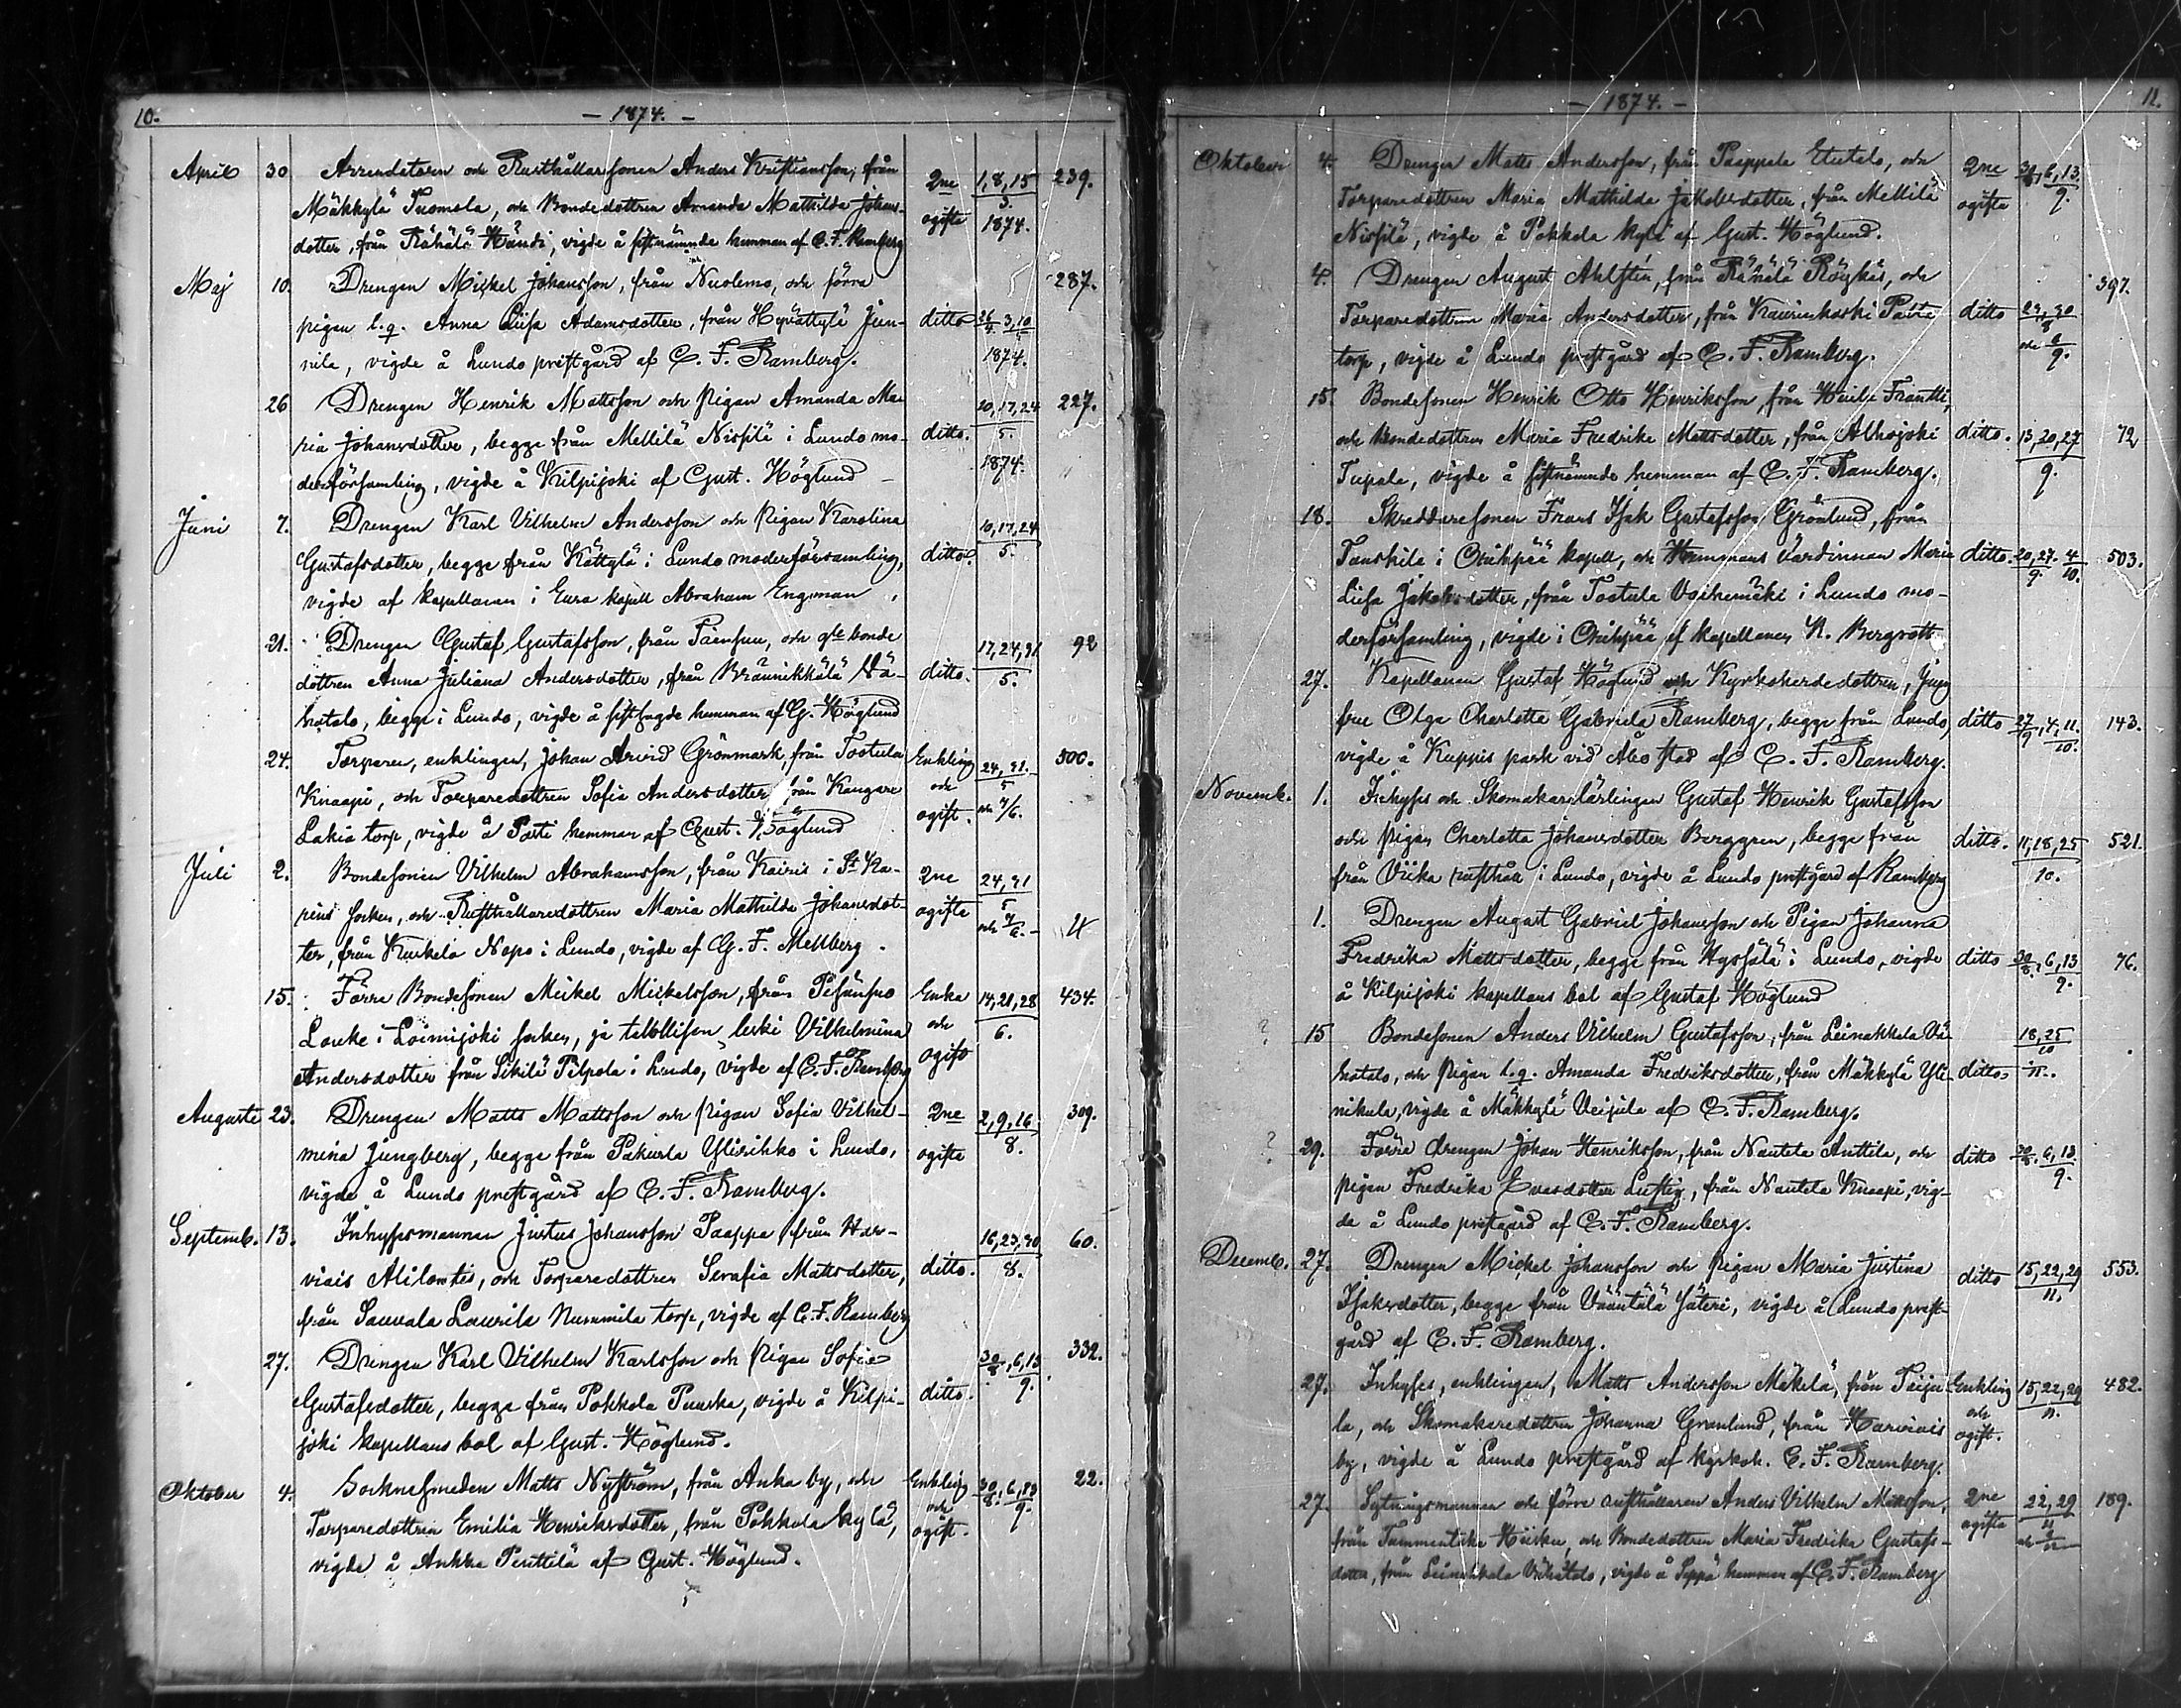 10.
- 1874. -
April 30 Arrendatorn och Rusthållarsonen Anders Kristiansson, från 2ne 1, 8, 15 239.
Mäkkylä Tuomola, och Bondedottren Amanda Mathilda Johans- ogifta 3. 1874.
dotter, från Rähälä Händi, vigde å sistnämnde hemman af C. F. Ramberg
Maj 10. Drengen Mickel Johansson, från Nuolemo, och förra 287.
pigan l. q. Anna Liisa Adamsdotter, från Hypättylä Jun- ditto 26/4, 3, 10
nila, vigde å Lundo prestgård af C. F. Ramberg. 1874.
26 Drengen Henrik Mattsson och Pigan Amanda Ma- 10, 17, 24 227.
ria Johansdotter, begge från Mellilä Nissilä i Lundo mo- ditto. 5.
derförsamling, vigde å Kilpijoki af Gust. Höglund 1874.
Juni 7. Drengen Karl Vilhelm Andersson och Pigan Karolina 10, 17, 24
Gustafsdotter, begge från Kättylä i Lundo moderförsamling, ditto. 5.
vigde af kapellanen i Eura kapell Abraham Engman
21. Drengen Gustaf Gustafsson, från och bonde 17, 24, 31 92
dottren Anna Juliana Andersdotter, från Väh- ditto. 5.
hotalo, begge i Lundo, vigde å sistsagde hemman af G. Höglund
24. Torparen, enklingen, Johan Arvid Grönmark, från Tostula Enkling 24, 31. 500.
Knaapi, och Torparedottren Sofia Andersdotter från Kangare och 5
Lakia torp, vigde å Pasti hemman af Gust. Höglund ogift. och 7/6.
Juli 2. Bondesonen Vilhelm Abrahamsson, från Kairis i St Ka- 2ne 24, 31
rins socken, och Rusthållaredottren Maria Mathilda Johansdot- ogifta 5 och 7/6. - 4
ter, från Kurkela Napo i Lundo, vigde af G. F. Mellberg.
15. Förre Bondesonen Mickel Mickelsson, från Enka 14, 21, 28 434.
Louke i Loimijoki socken, ja leski Vilhelmina och 6.
Andersdotter från Sikilä Pilpola i Lundo, vigde af C. F. Ramberg ogift
Augusti 23. Drengen Matts Mattsson och Pigan Sofia Vilhel- 2ne 2, 9, 16 309.
mina Jungberg, begge från Pakurla Ylirihko i Lundo, ogifta 8.
vigde å Lundo prestgård af C. F. Ramberg.
Septemb. 13. Inhysesmannen Justus Johansson Paappa från Har- 16, 23, 30 60.
viais Alilontis, och Torparedottren Serafia Mattsdotter, ditto. 8.
från Sauvala Laurila Nummila torp, vigde af C. F. Ramberg
27. Drengen Karl Vilhelm Karlsson och Pigan Sofia 30/8, 6, 13 332.
Gustafsdotter, begge från Pokkola Puuska, vigde å Kilpi- ditto. 9.
joki kapellans bol af Gust. Höglund.
Oktober 4. Socknesmeden Matts Nyström, från Anka by, och Enkling 30/8, 6, 13 22.
Torparedottren Emilia Henriksdotter, från Pokkola kylä, och ogift. 9.
vigde å Ankka Penttilä af Gust. Höglund.
- 1874. -
11.
Oktober 4. Drengen Matts Andersson, från Paappala Etutalo, och 2ne 30/8, 6, 13
Torparedottren Maria Mathilda Jakobsdotter, från Mellilä ogifta 9.
Nissilä, vigde å Pokkola kylä af Gust. Höglund.
4. Drengen August Ahlstén, från Rähälä Röykäs, och 397.
Torparedottren Maria Andersdotter, från Kaurinkoski ditto 23, 30
torp, vigde å Lundo prestgård af C. F. Ramberg. 8 och 6/9.
15. Bondesonen Henrik Otto Henriksson, från Franttі,
och Bondedottren Maria Fredrika Mattsdotter, från Alhojoki ditto. 13, 20, 27 72
Tupala, vigde å sistnämnde hemman af C. F. Ramberg. 9.
18. Skreddaresonen Frans Isak Gustafsson Grönlund, från
Tauskila i Orihpää kapell, och Hemmans Värdinnan Maria ditto. 20, 27. 4 503.
Liisa Jakobsdotter, från Tostula Vochemäki i Lundo mo- 9. 10.
derförsamling, vigde i Orihpää af kapellanen N. Bergroth
27. Kapellanen Gustaf Höglund och Kyrkoherdedottren, Jung
frue Olga Charlotta Gabriela Ramberg, begge från Lundo, ditto 27/9, 4, 11. 143.
vigde å Kuppis park vid Åbo stad af C. F. Ramberg. 10.
Novemb. 1. Inhyses och Skomakarelärlingen Gustaf Henrik Gustafsson
och Pigan Charlotta Johansdotter Berggren, begge från ditto. 11, 18, 25 521.
från Viika rusthåll i Lundo, vigde å Lundo prestgård af Ramberg 10.
1. Drengen August Gabriel Johansson och Pigan Johanna
Fredrika Mattsdotter, begge från Hyssälä i Lundo, vigde ditto 30/8, 6, 13 76.
å Kilpijoki kapellans bol af Gustaf Höglund 9.
? 15 Bondesonen Anders Vilhelm Gustafsson, från Leinakkala Vä- 18, 25
hotalo, och Pigan l. q. Amanda Fredriksdotter, från Mäkkylä Yli- ditto. 10
nikula, vigde å Mäkkylä Veijula af C. F. Ramberg.
? 29. Förre drengen Johan Henriksson, från Nautela Anttila, och ditto 30/8. 6, 13
pigan Fredrika Evasdotter Lustig, från Nautela Knaapi, vig- 9.
de å Lundo prestgård af C. F. Ramberg.
Decemb. 27. Drengen Mickel Johansson och Pigan Maria Justina ditto 15, 22, 29 553.
Isaksdotter, begge från Vääntälä Säteri, vigde å Lundo prest- 11.
gård af C. F. Ramberg.
27. Inhyses, enklingen, Matts Andersson Mäkelä, från Paiju- Enkling 15, 22, 29 482.
la, och Skomakaredottren Johanna Granlund, från Harviais och ogift. 11.
by, vigde å Lundo prestgård af kyrkoh. C. F. Ramberg.
27. Sytningsmannen och förre rusthållaren Anders Vilhelm Mattsson, 2ne 22, 29 189.
från Tammentaka Hiiska, och Bondedottren Maria Fredrika Gustafs- ogifta 11
dotter, från Leinakkala Vähätalo, vigde å Seppä hemman af C. F. Ramberg